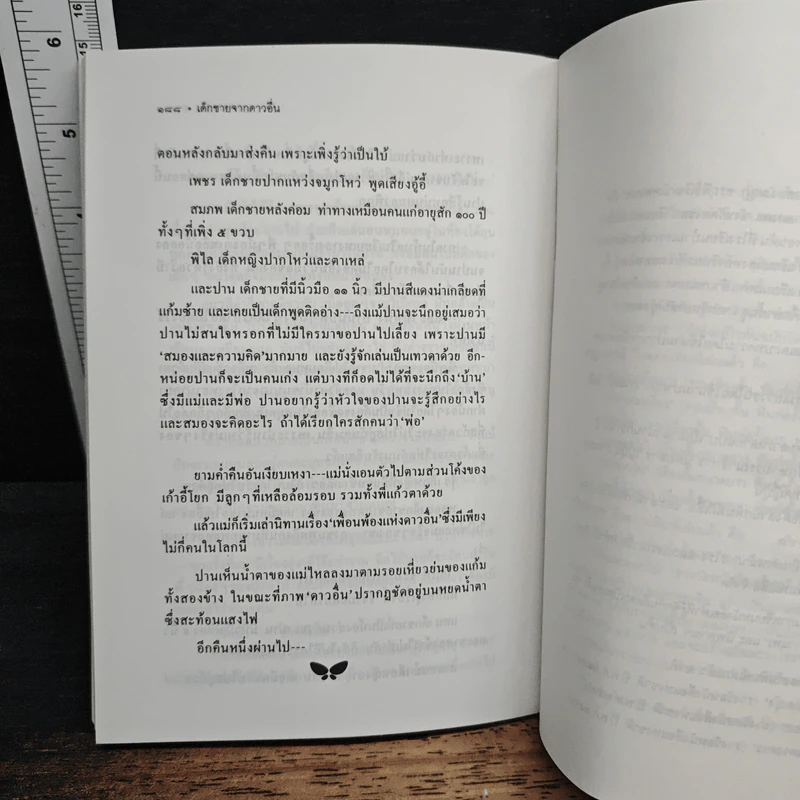 ๑๘๘ • เด็กชายจากดาวอื่น
ตอนหลังกลับมาส่งคืน เพราะเพิ่งรู้ว่าเป็นใบ้
เพชร เด็กชายปากแหว่งจมูกโหว่ พูดเสียงอู้อี้
สมภพ เด็กชายหลังค่อม ท่าทางเหมือนคนแก่อายุสัก ๑๐๐ ปี
ทั้งๆที่เพิ่ง ๕ ขวบ
พิไล เด็กหญิงปากโหว่และตาเหล่
และปาน เด็กชายที่มีนิ้วมือ ๑๑ นิ้ว มีปานสีแดงน่าเกลียดที่
แก้มซ้าย และเคยเป็นเด็กพูดติดอ่าง---ถึงแม้ปานจะนึกอยู่เสมอว่า
ปานไม่สนใจหรอกที่ไม่มีใครมาขอปานไปเลี้ยง เพราะปานมี
‘สมองและความคิด’มากมาย และยังรู้จักเล่นเป็นเทวดาด้วย อีก-
หน่อยปานก็จะเป็นคนเก่ง แต่บางทีก็อดไม่ได้ที่จะนึกถึง‘บ้าน’
ซึ่งมีแม่และมีพ่อ ปานอยากรู้ว่าหัวใจของปานจะรู้สึกอย่างไร
และสมองจะคิดอะไร ถ้าได้เรียกใครสักคนว่า‘พ่อ’
ยามค่ำคืนอันเงียบเหงา---แม่นั่งเอนตัวไปตามส่วนโค้งของ
เก้าอี้โยก มีลูกๆที่เหลือล้อมรอบ รวมทั้งพี่แก้วตาด้วย
แล้วแม่ก็เริ่มเล่านิทานเรื่อง‘เพื่อนพ้องแห่งดาวอื่น’ซึ่งมีเพียง
ไม่กี่คนในโลกนี้
ปานเห็นน้ำตาของแม่ไหลลงมาตามรอยเหี่ยวย่นของแก้ม
ทั้งสองข้าง ในขณะที่ภาพ‘ดาวอื่น’ปรากฏชัดอยู่บนหยดน้ำตา
ซึ่งสะท้อนแสงไฟ
อีกคืนหนึ่งผ่านไป---
6
5
16
15